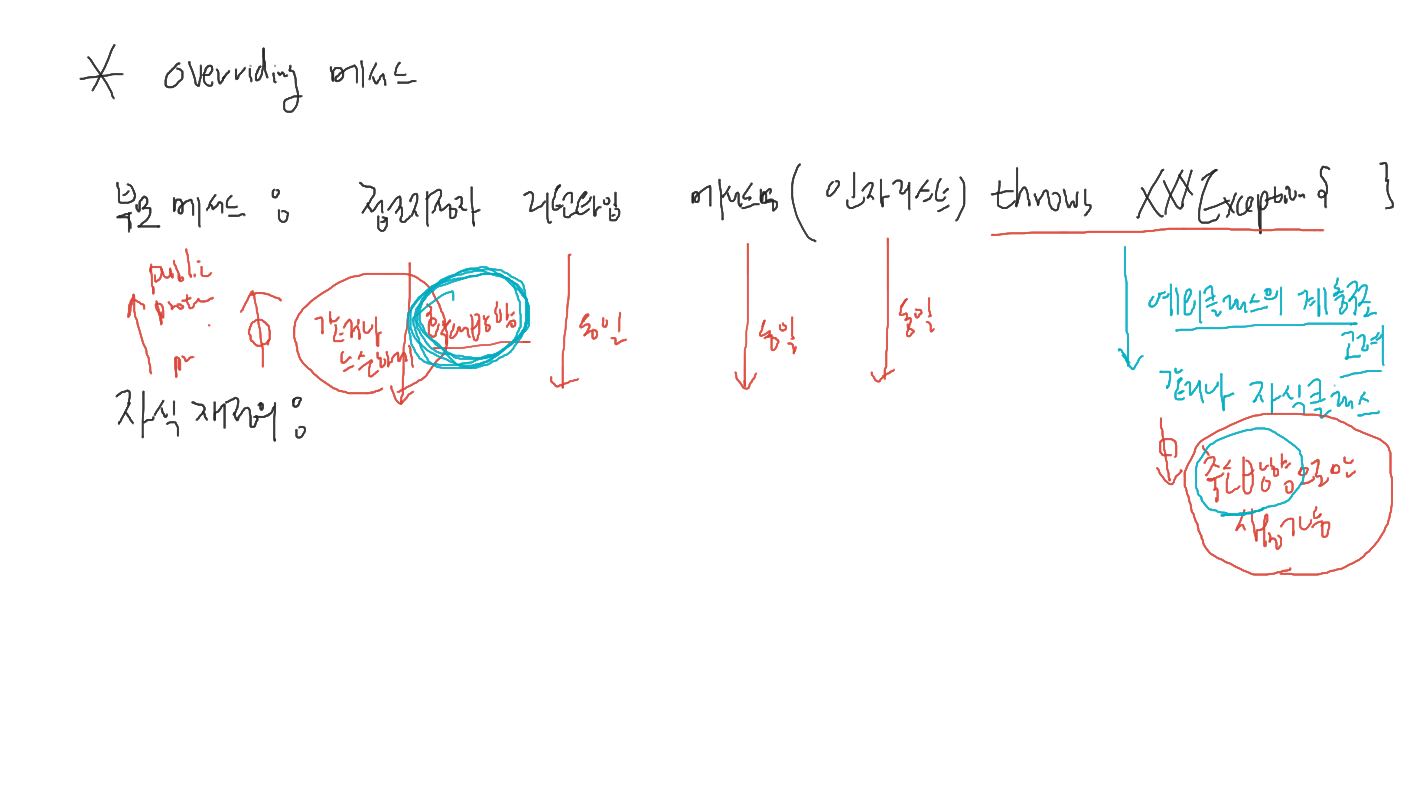 * overriding 메서드
부모 메서드 : 접근지정자 리턴타입 메서드명 ( 인자리스트 ) throws XXXException { }
public
prote
pr
같거나
느슨하게
확대방향
동일
동일
동일
예외클래스의 계층구조
고려
같거나 자식클래스
축소방향으로만
사용가능
자식 재정의 :